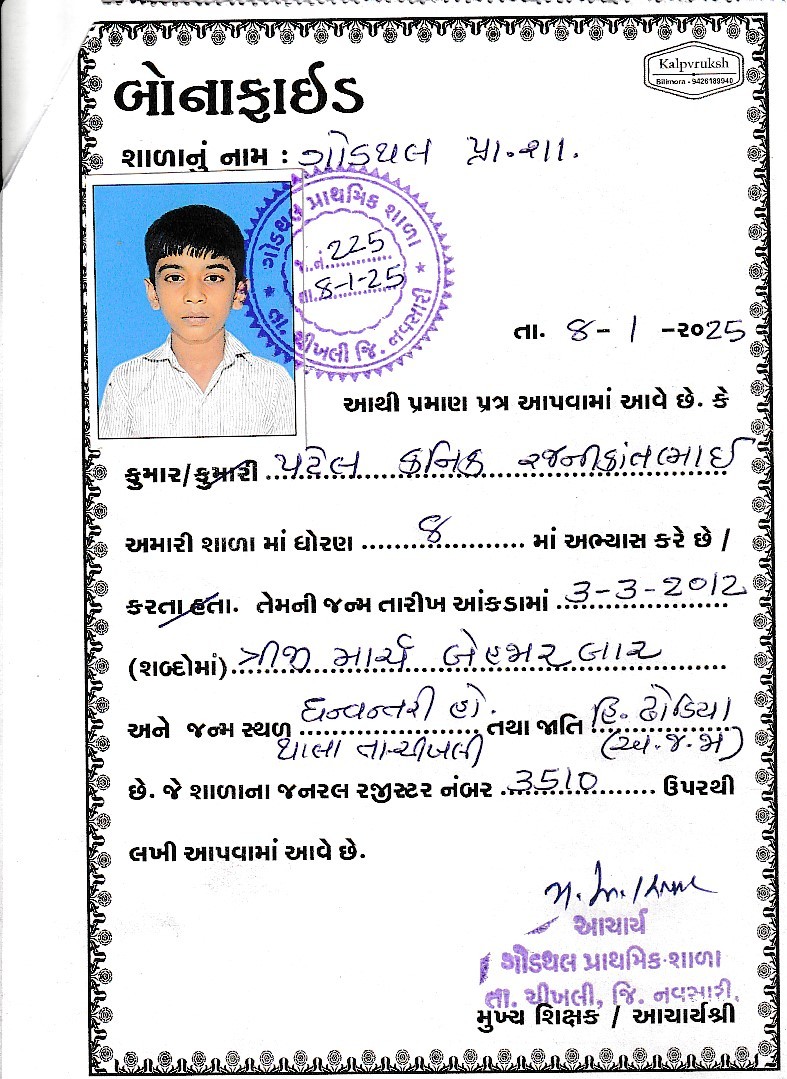 Kalpvruksh
Bilimora - 9426189940
બોનાફાઈડ
શાળાનું નામ : ગોડથલ પ્રા.શા.
ગોડથલ પ્રાથમિક શાળા
જા.નં. 225
તા. 8-1-25
તા. ચીખલી જિ. નવસારી
તા. 8 - 1 - ૨૦25
આથી પ્રમાણ પત્ર આપવામાં આવે છે. કે
કુમાર/કુમારી પટેલ કનિક રજનીકાંતભાઈ
અમારી શાળા માં ધોરણ ૮ માં અભ્યાસ કરે છે /
કરતા હતા. તેમની જન્મ તારીખ આંકડામાં 3-3-2012
(શબ્દોમાં) ત્રીજી માર્ચ બેહજાર બાર
અને જન્મ સ્થળ ધન્વન્તરી હો. તથા જાતિ હિ. ઢોડિયા
થાલા તા-ચીખલી (અ.જ.જા)
છે. જે શાળાના જનરલ રજીસ્ટર નંબર 3510 ઉપરથી
લખી આપવામાં આવે છે.
આચાર્ય
ગોડથલ પ્રાથમિક શાળા
તા. ચીખલી, જિ. નવસારી.
મુખ્ય શિક્ષક / આચાર્યશ્રી